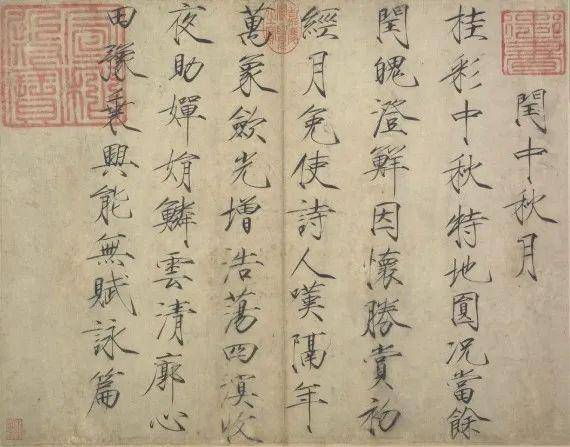 御書
閏中秋月
桂彩中秋特地圓況當餘
閏魄澄鮮因懷勝賞初
經月免使詩人嘆隔年
萬象歛光增浩蕩四溟收
夜助嬋娟鱗雲清廓心
田豫乘興能無賦詠篇